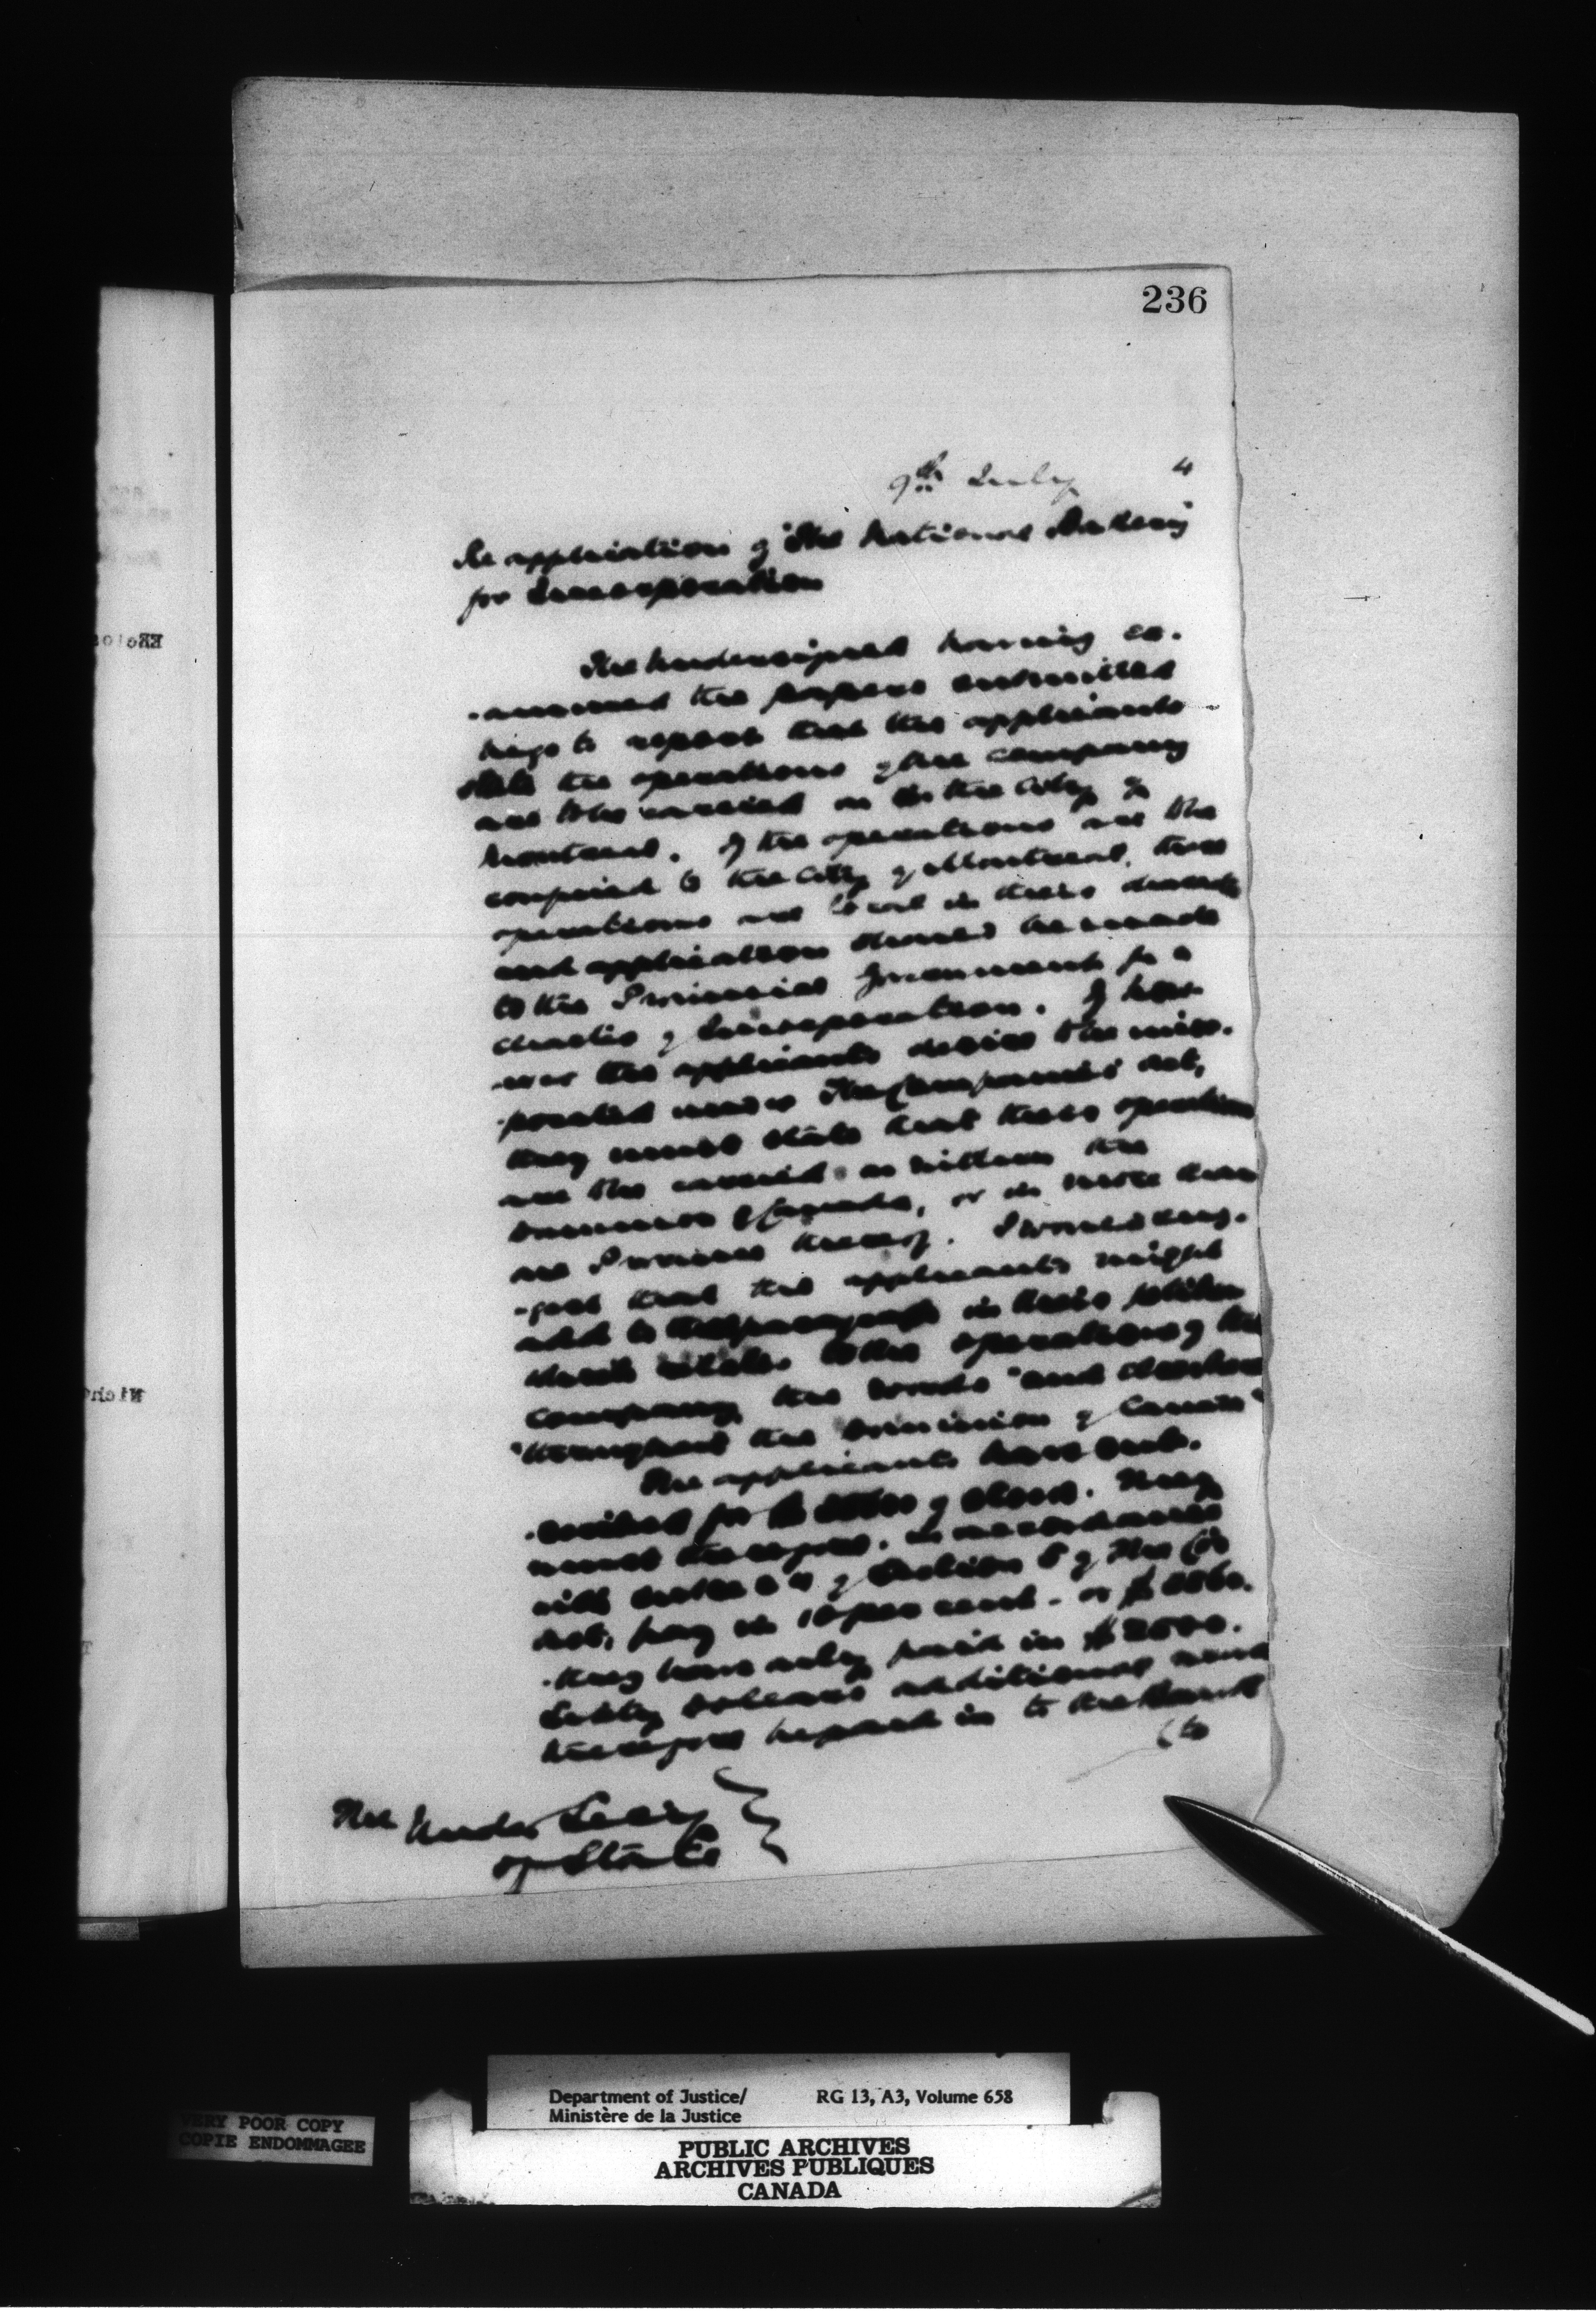 236
9th July 4
Re application of "The National Bakery"
for Incorporation
The undersigned having ex-
-amined the papers submitted
begs to report that the applicants
state the operations of the company
are to be carried on in the City of
Montreal. If the operations are to be
confined to the City of Montreal, these
operations are local in their character
and application should be made
to the Provincial Government for a
charter of Incorporation. If how-
-ever the applicants desire to be incor-
-porated under The Companies Act,
they must state that their operations
are to be carried on within the
Dominion of Canada, or in more than
one Province thereof. I would sug-
-gest that the applicants might
add to the paragraph in their petition
which relates to the operations of the
company, the words "and elsewhere
"throughout the Dominion of Canada"
The applicants have sub-
-scribed for of stock. They
must therefore, in accordance
with of Section 5 of The Cos
Act, pay in 10 per cent - or
They have only paid in $2500.
Sixty dollars additional must
therefore be paid in to the Bank
(to
The Under Secy
of State
Department of Justice/ RG 13, A3, Volume 658
Ministère de la Justice
VERY POOR COPY
COPIE ENDOMMAGEE
PUBLIC ARCHIVES
ARCHIVES PUBLIQUES
CANADA